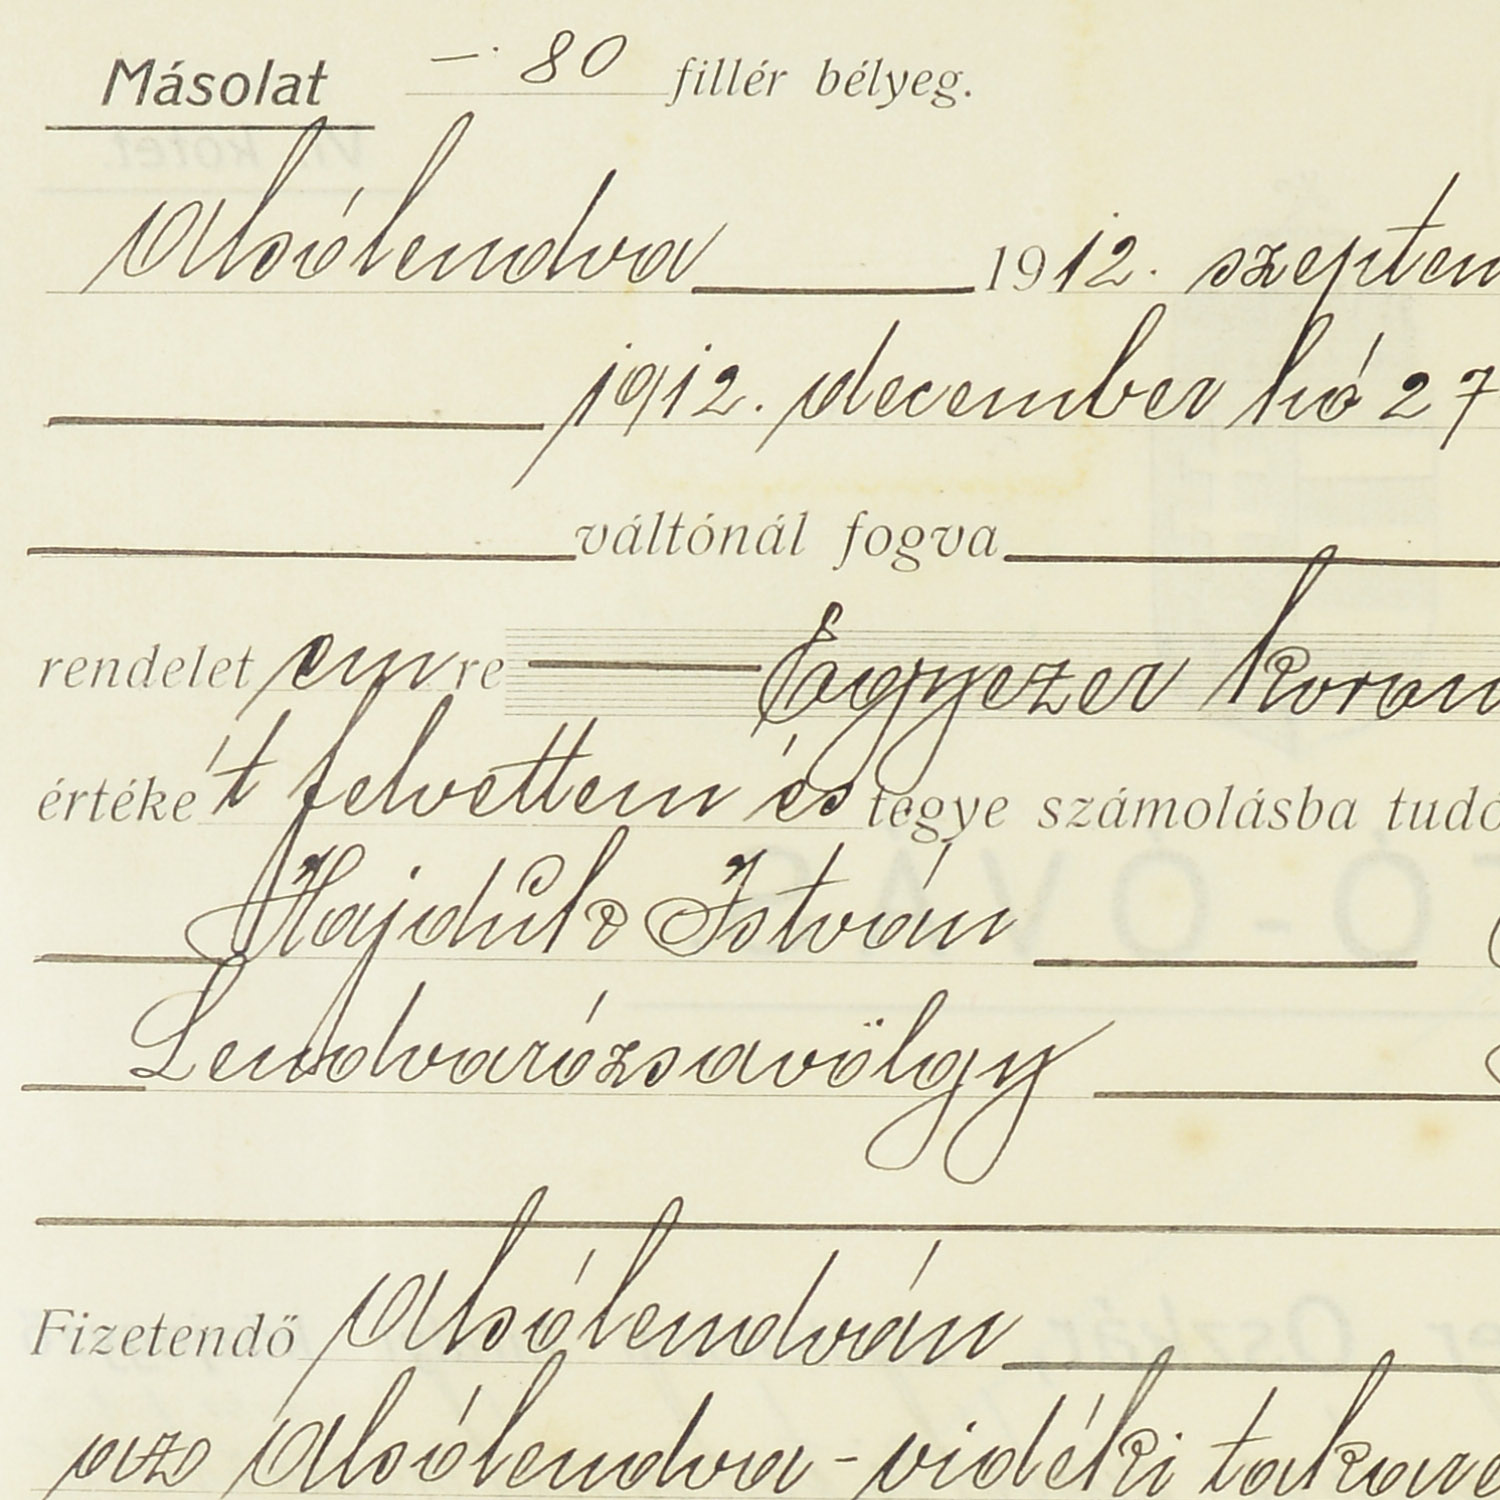 Másolat —· 80 fillér bélyeg.
Alsólendva 1912. szeptem
1912. december hó 27
váltónál fogva
rendelet em re Egyezer koron
értéke't felvettem és tegye számolásba tudó
Hajdúk István
Lendvarózsavölgy
Fizetendő Alsólendván
az Alsólendva-vidéki takaré